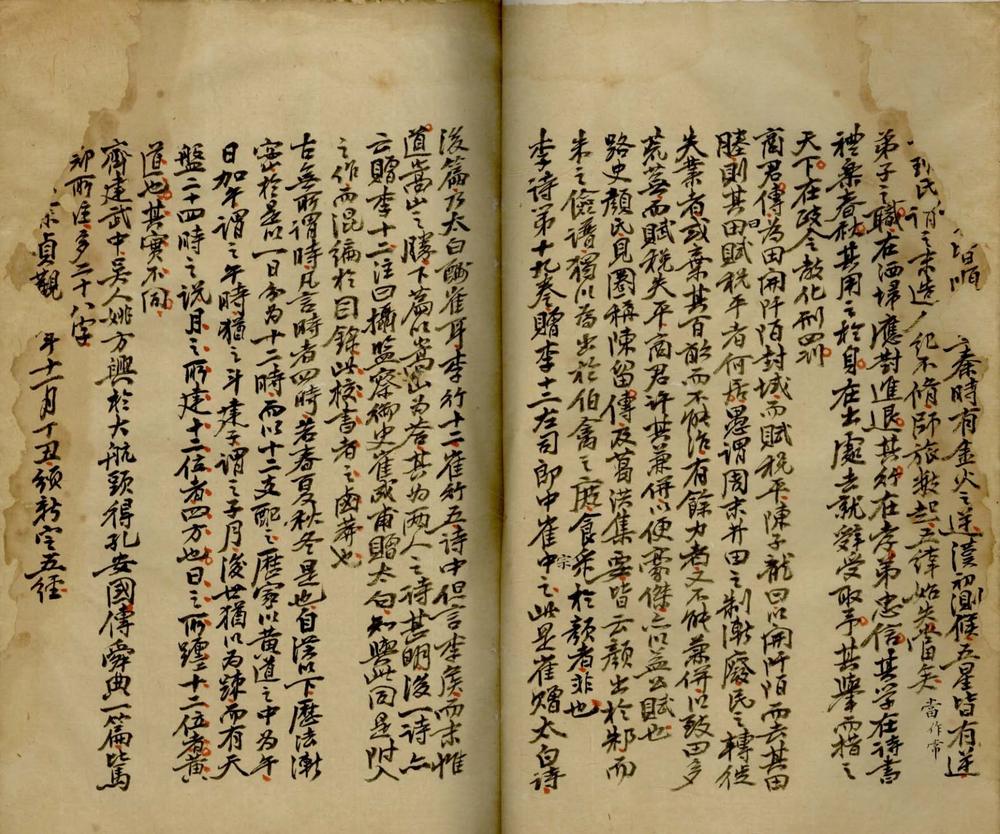 秦時有金火之逆漢初測候五星皆有逆
紀不脩師旅數起五緯始失當矣當作常
弟子之職在洒埽應對進退其行在孝弟忠信其學在詩書
禮樂春秋其用之於身在出處去就辭受取予其擧而措之
天下在政令教化刑罰
商君傳為田開阡陌封域而賦稅平陳子龍曰以開阡陌而去其田
塍則其田賦稅平者何居愚謂周末井田之制漸廢民之轉徙
失業者或棄其百畝而不能治有餘力者又不能兼併以致田多
荒蕪而賦稅失平商君許其兼併以便豪傑亦以益公賦也
路史顏氏見圈稱陳留傳及葛洪集要皆云顏出於邾而
朱之儉譜獨以為出於伯禽之庶食采於顏者非也
宗
李詩第十九卷贈李十二左司郎中崔中之此是崔贈太白詩
後篇乃太白酬崔耳李行十二崔行五詩中但言李侯而末惟
道嵩山之勝下篇以嵩山為答其為兩人之詩甚明後一詩亦
云贈李十二注曰攝監察御史崔成甫贈太白知與此同是附入
之作而混編於目錄此校書者之鹵莽也
古無所謂時凡言時者四時若春夏秋冬是也自漢以下歷法漸
密於是以一日分為十二時而以十二支配之歷家以黃道之中為午
日加午謂之午時猶之斗建子謂之子月後世猶以為疎而有天
盤二十四時之說月之所建十二位者四方也日之所躔十二位者黃
道也其實不同
齊建武中吳人姚方興於大航頭得孔安國傳舜典一篇比馬
鄭所注多二十八字
宗貞觀 年十一月丁丑頒新定五經